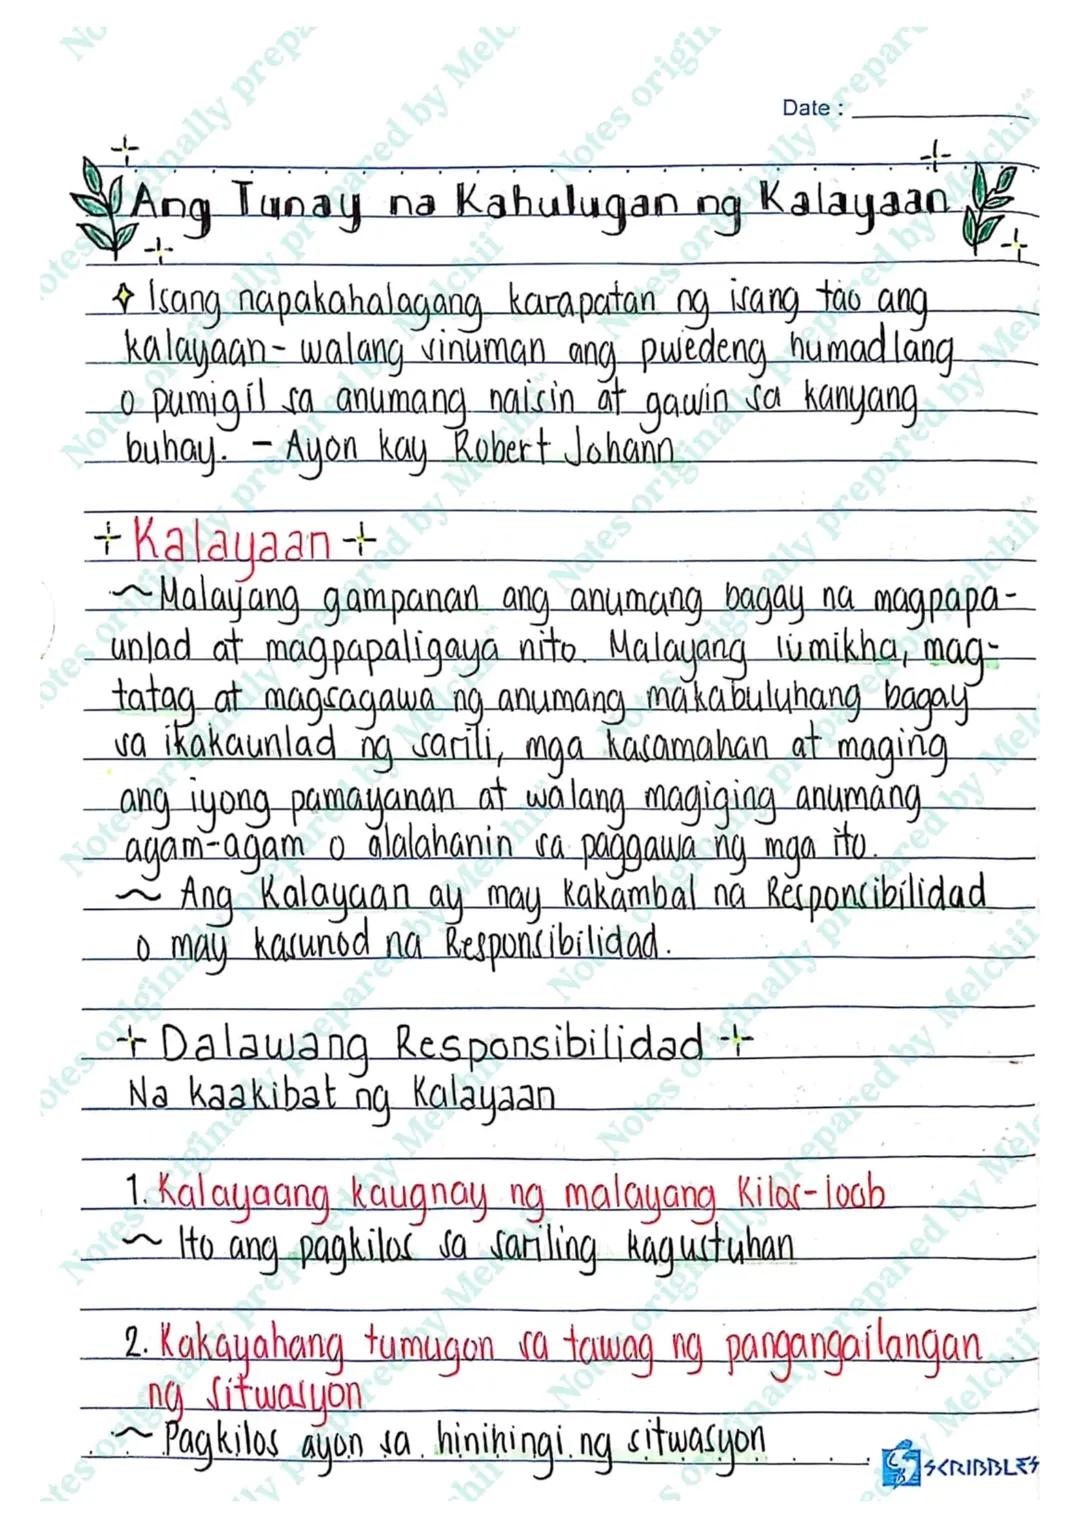 Date :
Ang Tunay na Kahulugan ng Kalayaan
Isang napakahalagang karapatan ng isang tao ang
kalayaan- walang sinuman ang pwedeng humadlang
o pumigil sa anumang naisin at gawin sa kanyang
buhay. - Ayon kay Robert Johann
+ Kalayaan +
~ Malayang gampanan ang anumang bagay na magpapa-
unlad at magpapaligaya nito. Malayang lumikha, mag-
tatag at magsagawa ng anumang makabuluhang bagay
sa ikakaunlad ng sarili, mga kasamahan at maging
ang iyong pamayanan at walang magiging anumang
agam-agam o alalahanin sa paggawa ng mga ito.
~ Ang Kalayaan ay may kakambal na Responsibilidad
o may kasunod na Responsibilidad.
+ Dalawang Responsibilidad +
Na kaakibat ng Kalayaan
1. Kalayaang kaugnay ng malayang Kilos-loob
~ Ito ang pagkilos sa sariling kagustuhan
2. Kakayahang tumugon sa tawag ng pangangailangan
ng sitwasyon
~ Pagkilos ayon sa hinihingi ng sitwasyon
SCRIBBLES
Notes originally prepared by Melchii^^